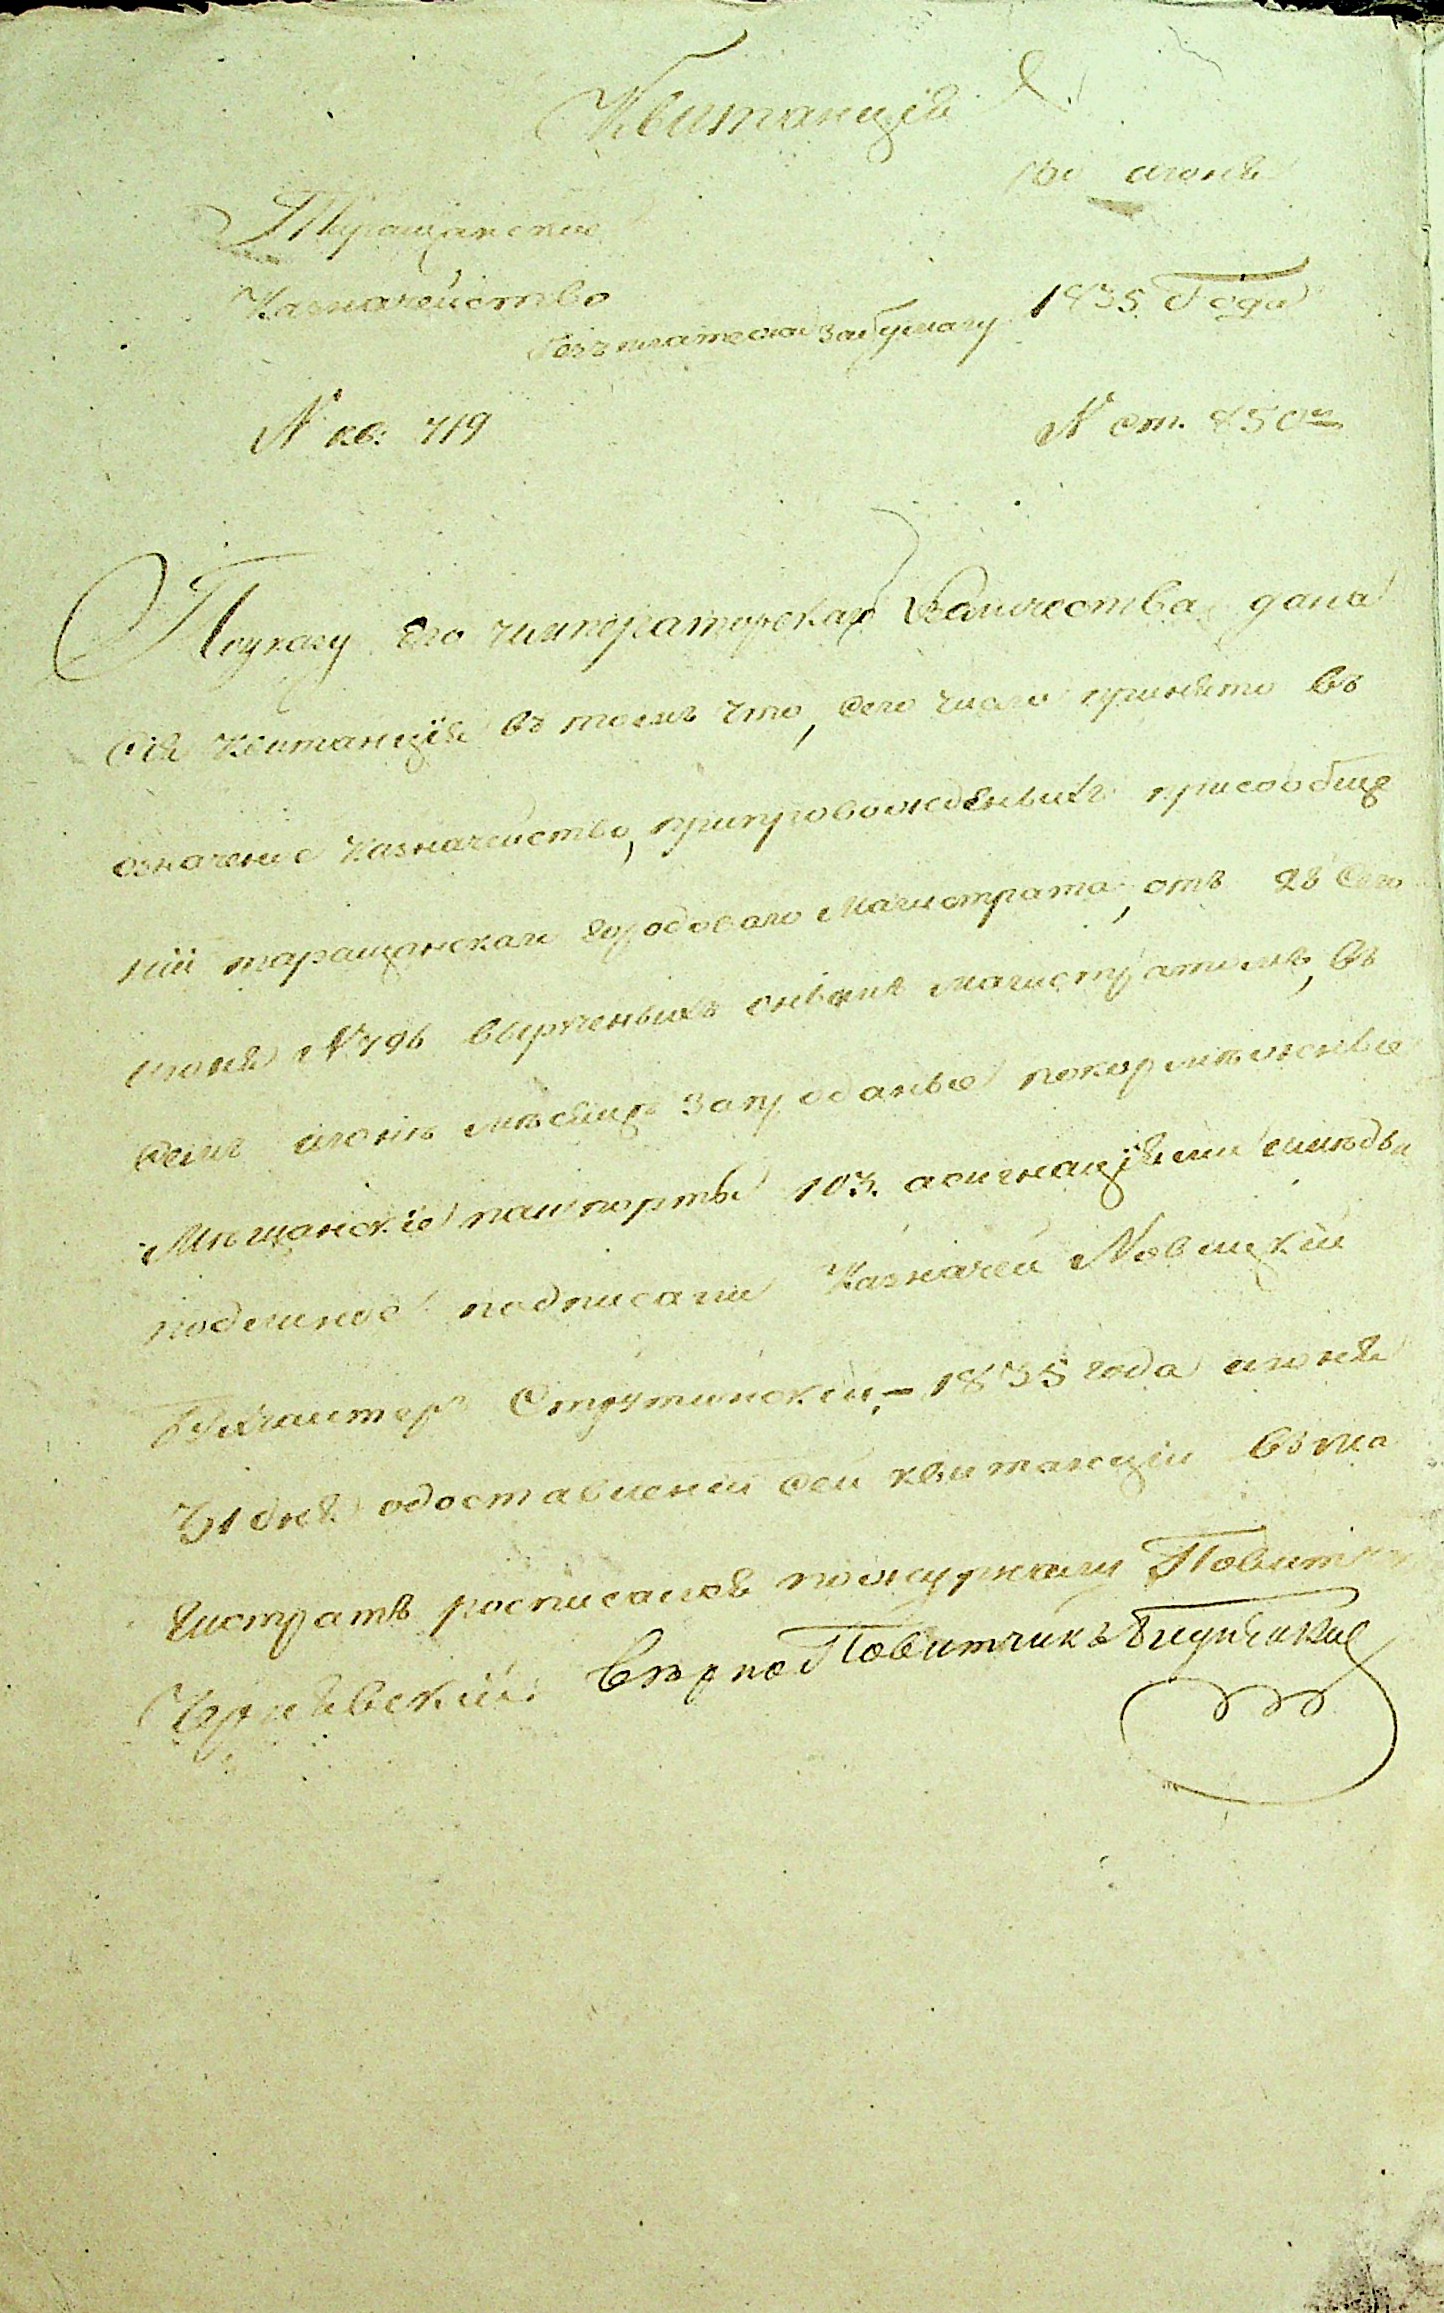 Квитанція
30 июня
Таращанское
Казначейство
1835 Года
безъ платежа за бумагу
N кв: 719
N ст. 850
Поуказу Его императорскаго Величества дана
Сія Квитанція въ томъ что, сего числа принято въ
означеное Казначейство, припровожденныхъ присообще
ніи таращанскаго городоваго Магистрата, отъ 28 Сего
июня N 796 вырученыхъ онымъ магистратомъ, въ
семъ июнѣ мѣсяцѣ запроданые покормѣжные
Мѣщанскіе пашпорты 103. асигнаціями
подлиное подписали Казначей Новицкій
Бухгалтеръ Струтинскій, - 1835 года июня
31 дня одоставленій сей квитанціи въ ма
гистратъ росписался пожурналу Повитчикъ
Чернявскій. Вѣрно Повитчикъ